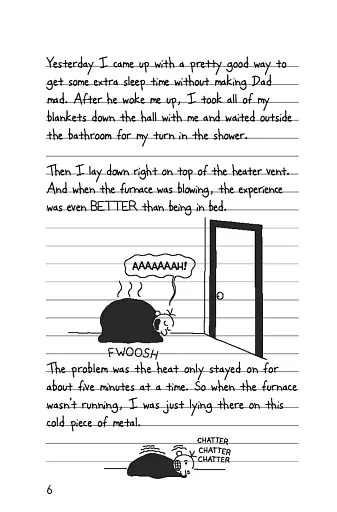 Yesterday I came up with a pretty good way to
get some extra sleep time without making Dad
mad. After he woke me up, I took all of my
blankets down the hall with me and waited outside
the bathroom for my turn in the shower.
Then I lay down right on top of the heater vent.
And when the furnace was blowing, the experience
was even BETTER than being in bed.
AAAAAAAH!
FWOOSH
The problem was the heat only stayed on for
about five minutes at a time. So when the furnace
wasn't running, I was just lying there on this
cold piece of metal.
CHATTER
CHATTER
CHATTER
6